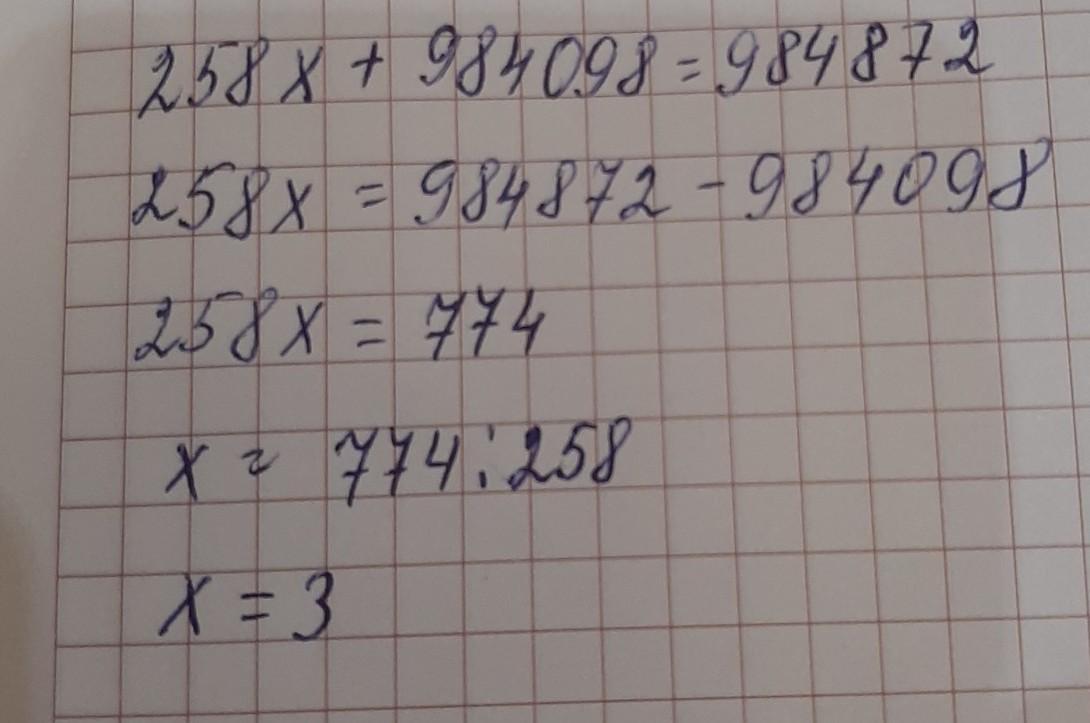 258x + 984098 = 984872
258x = 984872 - 984098
258x = 774
x = 774 : 258
x = 3